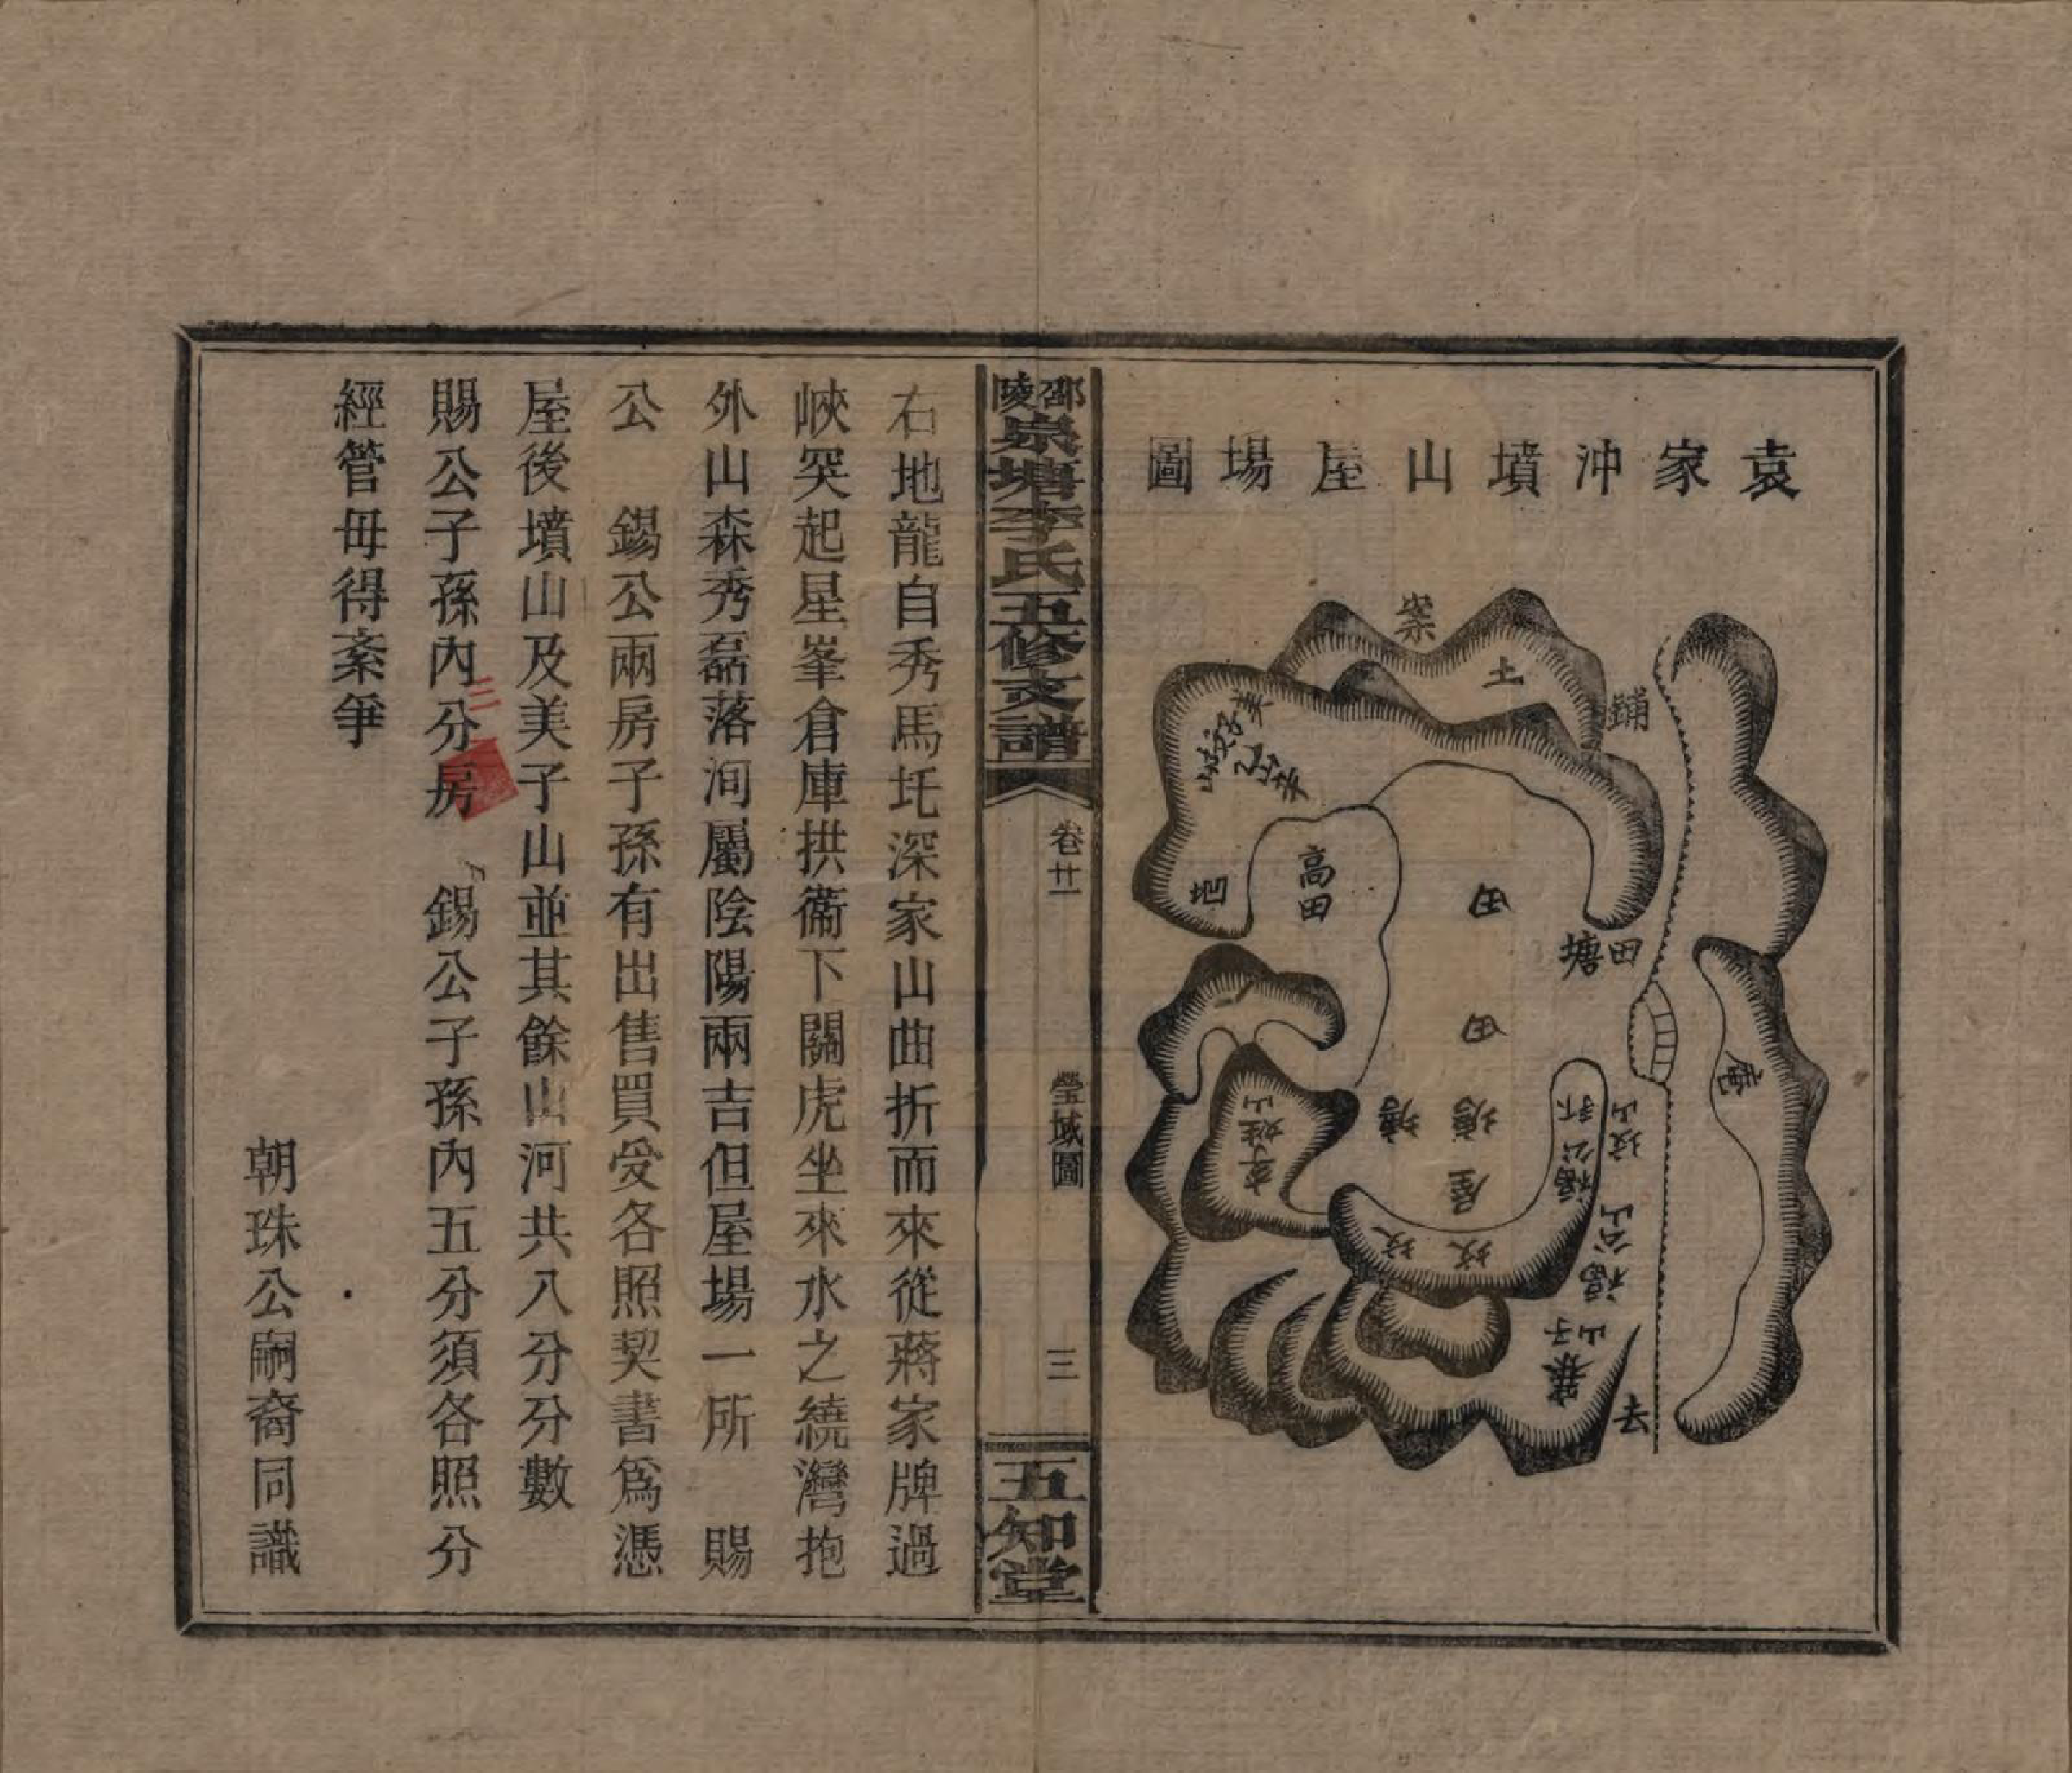 袁家沖墳山屋場圖
案
土
鋪
美
地
高田
田
田塘
田
塘
塘
屋
李姓山
福公
坟山
福公山
坟
坟
子山
庵
去
邵陵泉塘李氏五修支譜
卷廿一
塋域圖
三
五知堂
右地龍自秀馬圫深家山曲折而來從蔣家牌過
峽突起星峯倉庫拱衞下關虎坐來水之繞灣抱
外山森秀磊落洵屬陰陽兩吉但屋場一所 賜
公 錫公兩房子孫有出售買受各照契書爲憑
屋後墳山及美子山並其餘山河共八分分數
賜公子孫內三分房 錫公子孫內五分須各照分
經管毋得紊爭
朝珠公嗣裔同識